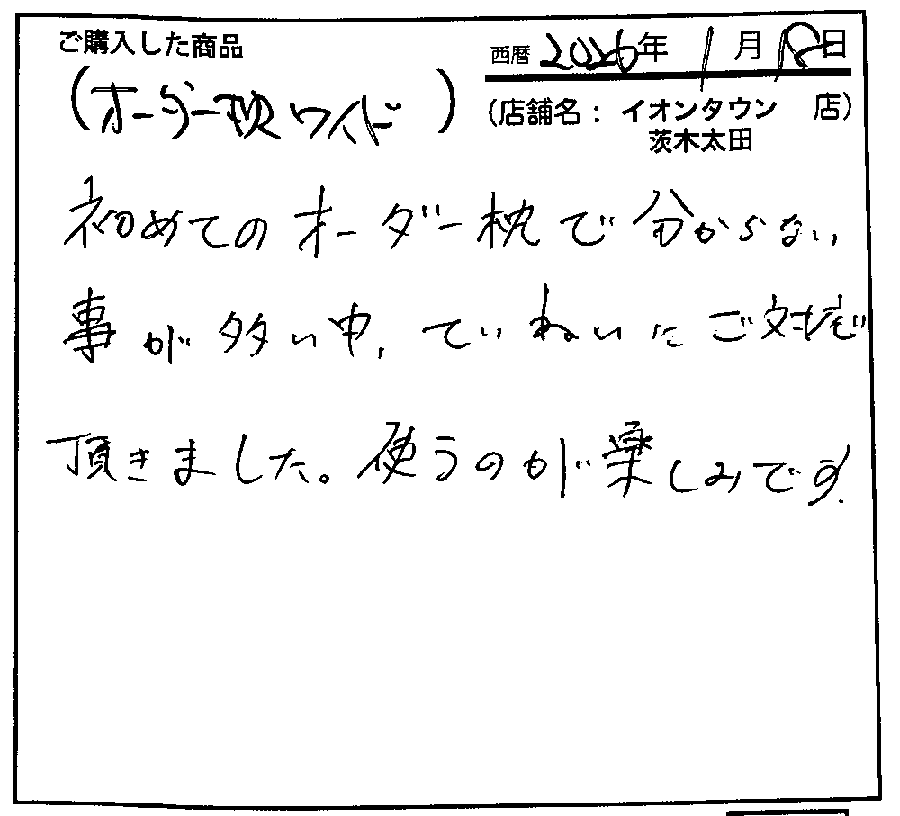 ご購入した商品
西暦 2026年 1月 18日
(オーダー枕ワイド)
(店舗名: イオンタウン 店)
茨木太田
初めてのオーダー枕で分からない
事が多い中、ていねいにご対応
頂きました。使うのが楽しみです。